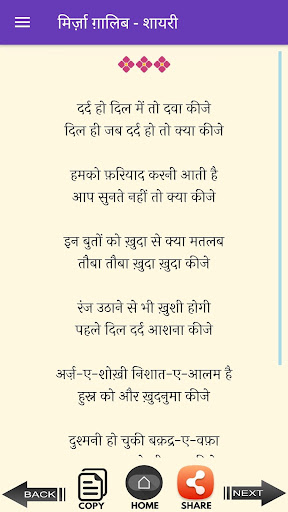 मिर्ज़ा ग़ालिब - शायरी
दर्द हो दिल में तो दवा कीजे
दिल ही जब दर्द हो तो क्या कीजे
हमको फ़रियाद करनी आती है
आप सुनते नहीं तो क्या कीजे
इन बुतों को ख़ुदा से क्या मतलब
तौबा तौबा ख़ुदा ख़ुदा कीजे
रंज उठाने से भी ख़ुशी होगी
पहले दिल दर्द आशना कीजे
अर्ज़-ए-शोख़ी निशात-ए-आलम है
हुस्न को और ख़ुदनुमा कीजे
दुश्मनी हो चुकी बक़द्र-ए-वफ़ा
BACK
COPY
HOME
SHARE
NEXT